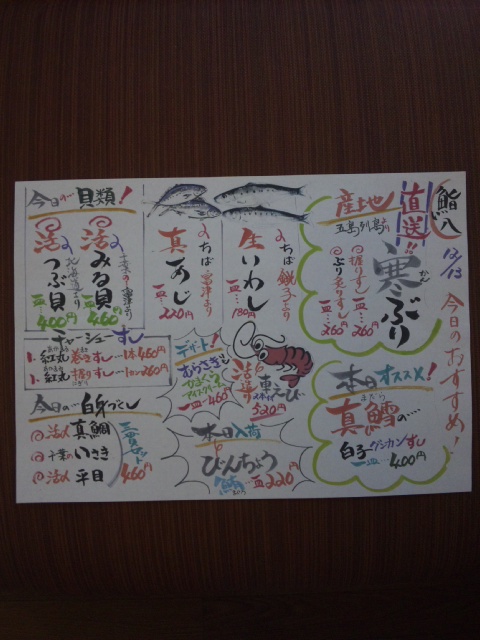 鮨八
12/13
今日のおすすめ!
直送!!
産地
五島列島
寒ぶり
かん
握りずし
一皿…260円
ぶり炙りずし
一皿…260円
本日オススメ!
まだら
真鱈の…
白子グンカンずし
一皿…400円
ちば銚子より
生いわし
一皿…180円
ちば富津より
真あじ
一皿…220円
車えび
活造り
520円
デザート!
むらさきいも
アイスクリーム
一皿…460円
本日入荷
びんちょう
鮪
一皿220円
今日の…貝類!
千葉の富津より
活〆みる貝
一皿…460円
北海道より
活〆つぶ貝
一皿…400円
チャーシューずし
1. 紅丸巻きずし…1本460円
1. 紅丸握りずし…1カン260円
今日の…白身づくし
活〆真鯛
千葉のいさき
活〆平目
460円